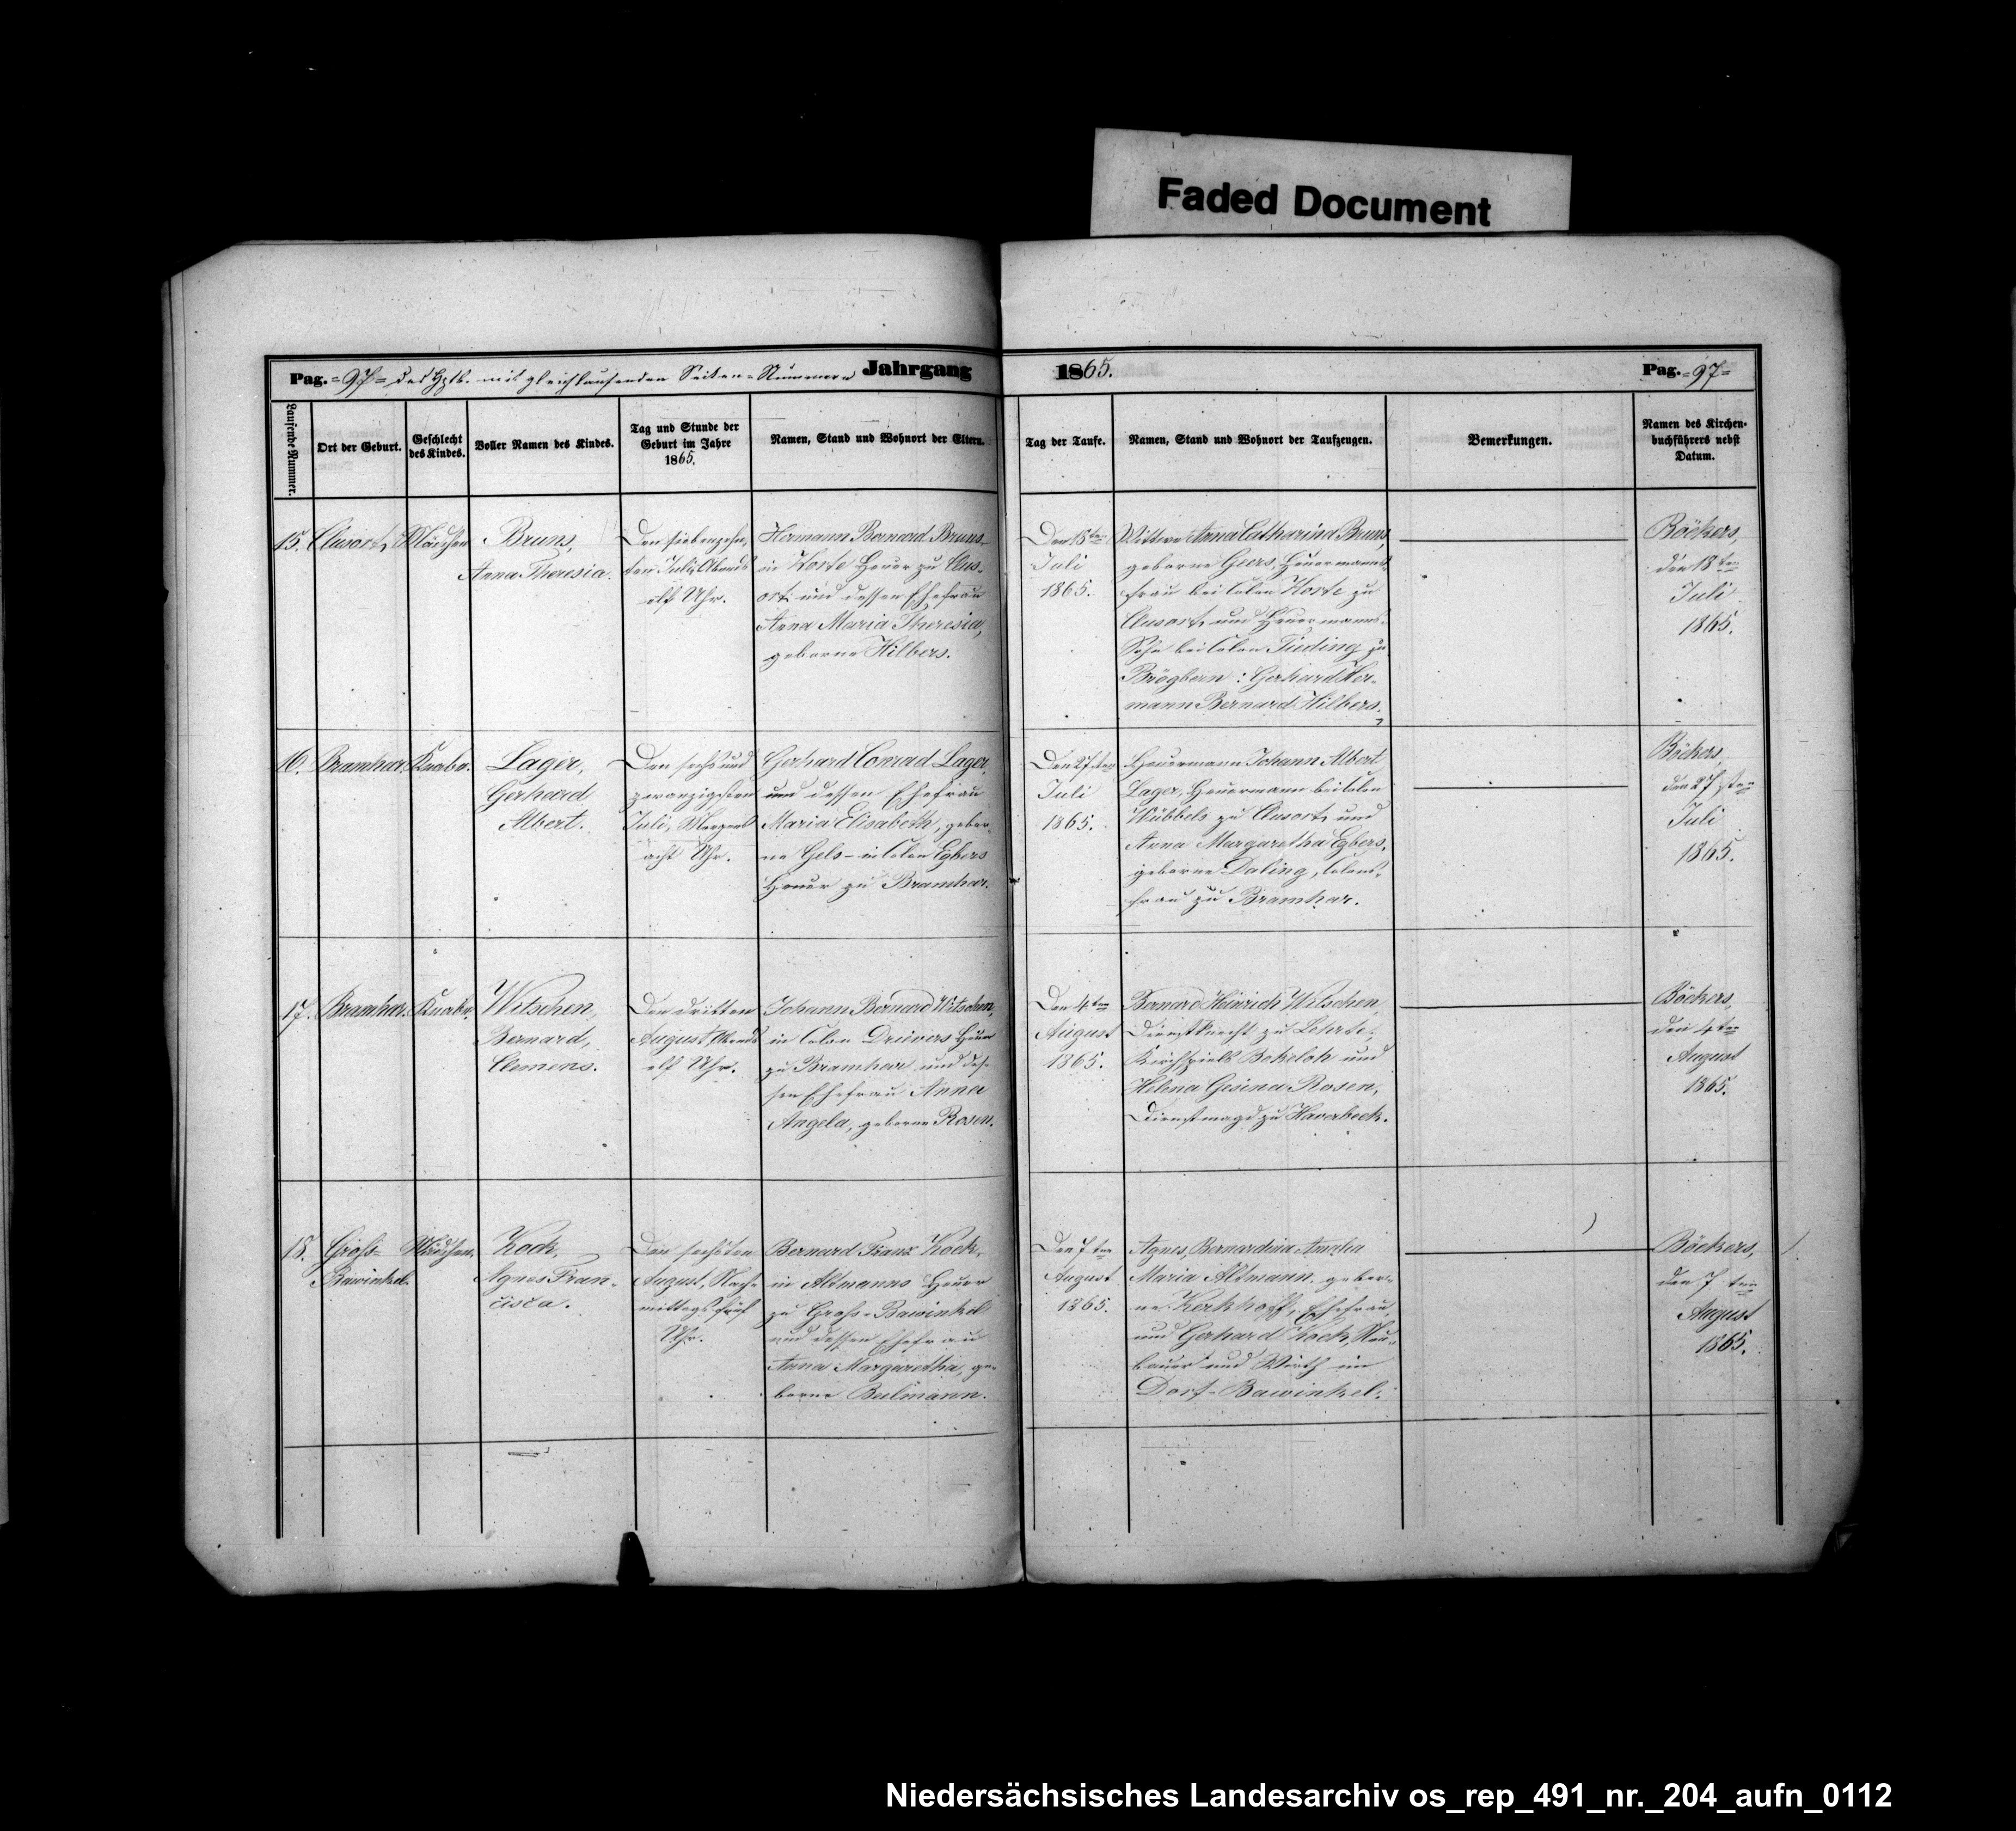 Faded Document
Pag. =97= des Hptb. mit gleichlaufenden Seiten-Nummern Jahrgang 1865. Pag. =97=
Laufende Nummer.
Ort der Geburt.
Geschlecht
des Kindes.
Voller Namen des Kindes.
Tag und Stunde der
Geburt im Jahre
1865.
Namen, Stand und Wohnort der Eltern.
Tag der Taufe.
Namen, Stand und Wohnort der Taufzeugen.
Bemerkungen.
Namen des Kirchen-
buchführers nebst
Datum.
15.
Clusort,
Mädchen
Bruns,
Anna Theresia.
Den siebenzehn-
ten Juli, Abends
elf Uhr.
Hermann Bernard Bruns-
in Horte Heuer zu Clus-
ort und dessen Ehefrau
Anna Maria Theresia,
geborne Hilbers.
Den 18ten
Juli
1865.
Wittwe Anna Catharina Bruns,
geborne Geers, Heuermanns-
frau bei Colon Horte zu
Clusort, und Heuermanns-
Sohn bei Colon Tieding zu
Brögbern: Gerhard Her-
mann Bernard Hilbers.
Böckers,
den 18ten
Juli
1865.
16.
Bramhar.
Knabe.
Lager,
Gerhard
Albert.
Den sechs und
zwanzigsten
Juli, Morgens
acht Uhr.
Gerhard Conrad Lager,
und dessen Ehefrau
Maria Elisabeth, gebor-
ne Gels- in Colon Egbers
Heuer zu Bramhar.
Den 27sten
Juli
1865.
Heuermann Johann Albert
Lager, Heuermann bei Colon
Wübbels zu Clusort, und
Anna Margaretha Egbers,
geborne Daling, Colons-
frau zu Bramhar.
Böckers,
den 27sten
Juli
1865.
17.
Bramhar.
Knabe.
Witschen,
Bernard,
Clemens.
Den dritten
August, Abends
elf Uhr.
Johann Bernard Witschen,
in Colon Drievers Heuer
zu Bramhar und des-
sen Ehefrau Anna
Angela, geborne Rosen.
Den 4ten
August
1865.
Bernard Heinrich Witschen,
Dienstknecht zu Lehrte,
Kirchspiels Bokeloh und
Helena Gesina Rosen,
Dienstmagd zu Haverbeck.
Böckers,
den 4ten
August
1865.
18.
Groß-
Bawinkel.
Mädchen.
Kock,
Agnes Fran-
cisca.
Den sechsten
August, Nach-
mittags fünf
Uhr.
Bernard Franz Kock,
in Altmanns Heuer
zu Groß-Bawinkel
und dessen Ehefrau
Anna Margaretha, ge-
borne Bulmann.
Den 7ten
August
1865.
Agnes, Bernardina Amalia
Maria Altmann, gebor-
ne Kerkhoff, Ehefrau,
und Gerhard Kock, Neu-
bauer und Wirth im
Dorf-Bawinkel.
Böckers,
den 7ten
August
1865.
Niedersächsisches Landesarchiv os_rep_491_nr._204_aufn_0112